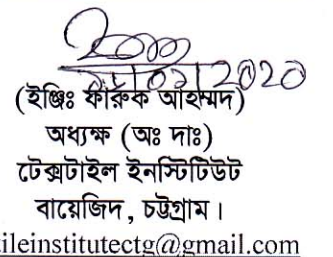 2020
(ইঞ্জিঃ ফারুক আহম্মদ)
অধ্যক্ষ (অঃ দাঃ)
টেক্সটাইল ইনস্টিটিউট
বায়েজিদ , চট্টগ্রাম ।
ileinstitutectg@gmail.com